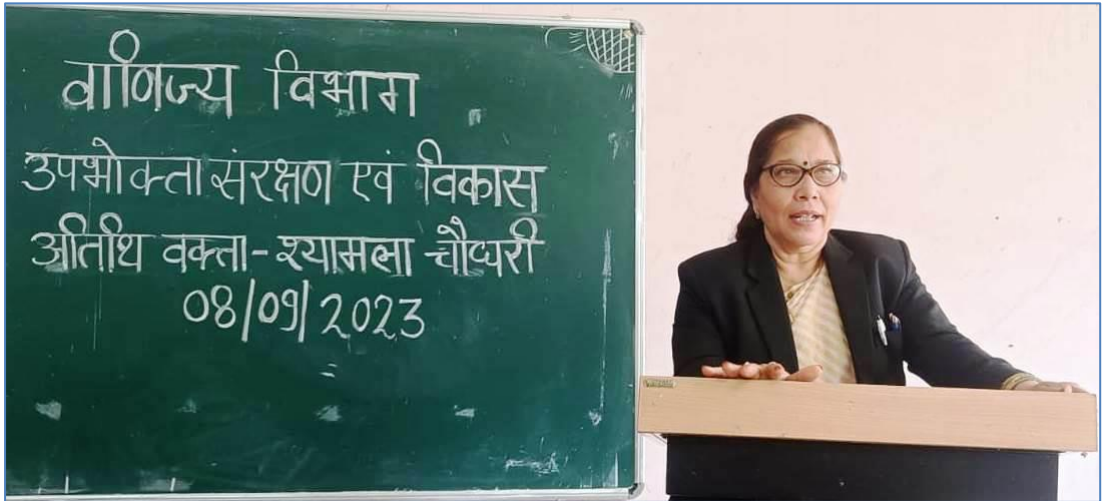 वाणिज्य विभाग
उपभोक्ता संरक्षण एवं विकास
अतिथि वक्ता - श्यामला चौधरी
08/09/2023